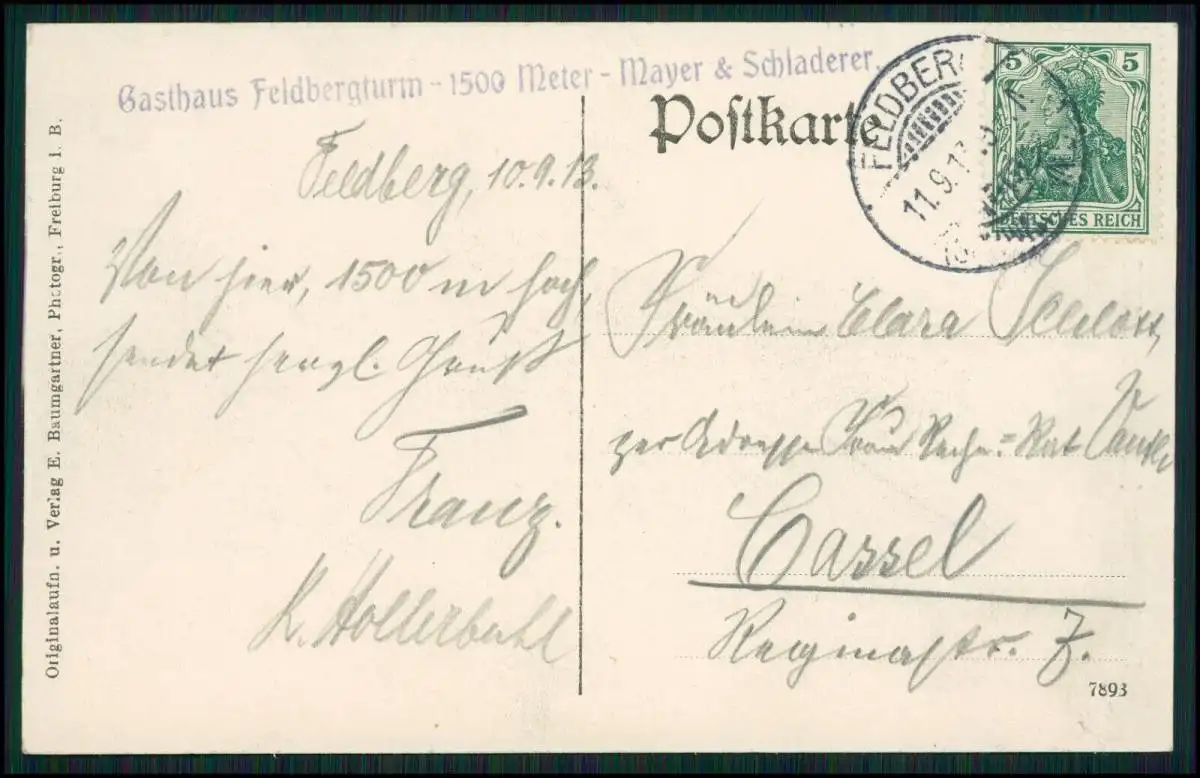 Gasthaus Feldbergturm - 1500 Meter - Mayer & Schladerer.
Postkarte
Feldberg, 10.9.13.
Von hier, 1500 m hoch,
sendet herzl. Gruß
Franz.
K. Hollerbuhl
FELDBERG
11.9.13
5 5
DEUTSCHES REICH
Fräulein Clara
per Adresse Frau Rechn.=Rat
Cassel
Reginastr. 7.
7893
Originalaufn. u. Verlag E. Baumgartner, Photogr., Freiburg i. B.